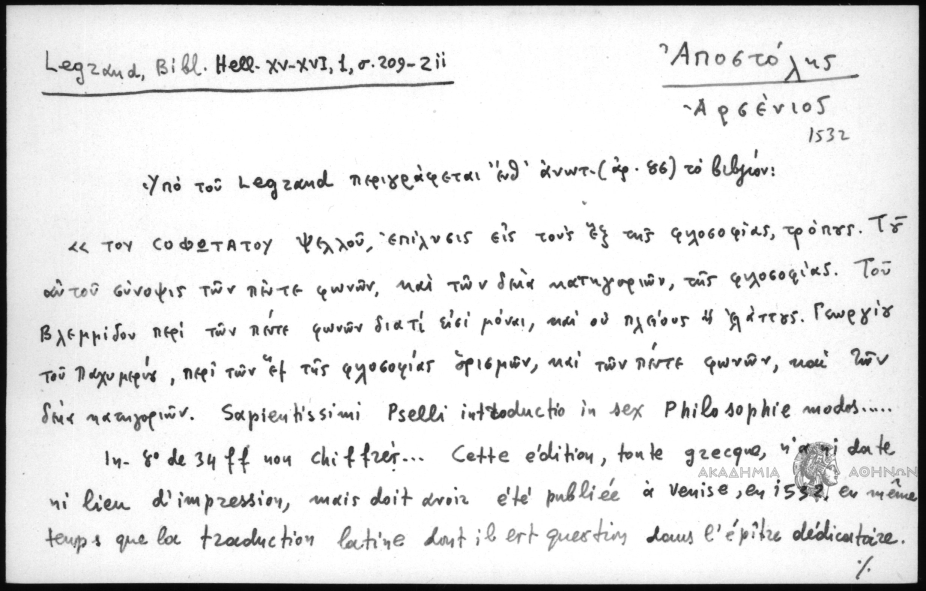 Legrand, Bibl. Hell. XV-XVI, 1, σ. 209-211
Ἀποστόλης
Ἀρσένιος
1532
Ὑπό τοῦ Legrand περιγράφεται ἐνθ' ἀνωτ. (ἀρ. 86) τό βιβλίον:
«« τοῦ σοφωτάτου Ψελλοῦ, ἐπίλυσις εἰς τούς ἕξ τῆς φιλοσοφίας, τρόπους. Τοῦ
αὐτοῦ σύνοψις τῶν πέντε φωνῶν, καί τῶν δέκα κατηγοριῶν, τῆς φιλοσοφίας. Τοῦ
Βλεμμίδου περί τῶν πέντε φωνῶν διατί εἰσί μόναι, καί οὐ πλείους ἤ ἐλάττους. Γεωργίου
τοῦ Παχυμερους, περί τῶν ἕξ τῆς φιλοσοφίας ὁρισμῶν, καί τῶν πέντε φωνῶν, καί τῶν
δέκα κατηγοριῶν. Sapientissimi Pselli introductio in sex Philosophie modos.....
In-8° de 34 ff non chiffrés... Cette édition, toute grecque, n'a ni date
ΑΚΑΔΗΜΙΑ ΑΘΗΝΩΝ
ni lieu d'impression, mais doit avoir été publiée à Venise, en 1532, en même
temps que la traduction latine dont il est question dans l'épître dédicatoire.
%.